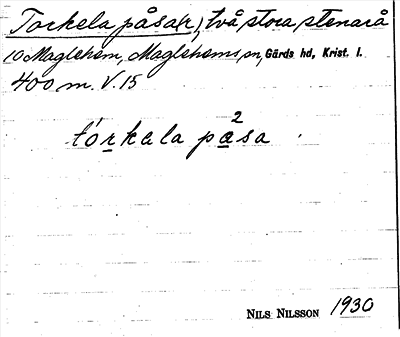 Torkela påsa(r, två stora stenar å
10 Maglehem, Maglehems sn, Gärds hd, Krist. l.
400 m. V. 15
tórkela pa²sa
NILS NILSSON 1930